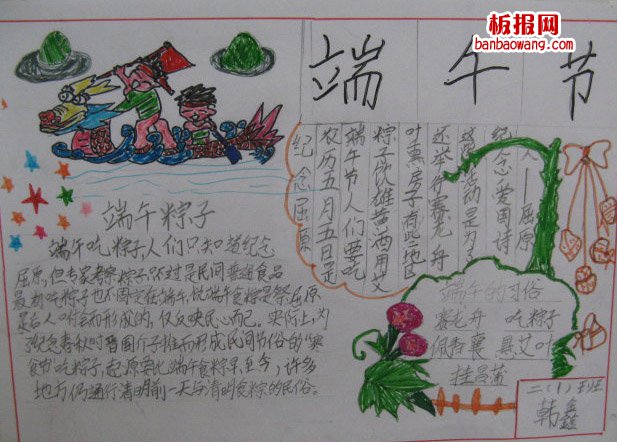 板报网
banbaowang.com
端午节
纪念屈原
农历五月五日是
端午节人们要吃
粽子饮雄黄酒用艾
叶熏房子有些地区
还举行赛龙舟
这些活动是为了
纪念爱国诗
人——屈原
端午粽子
端午吃粽子,人们只知道纪念
屈原,但专家考察粽子只不过是民间普通食品
最初吃粽子也不固定在端午,以端午食粽是祭屈原
是后人附会而形成的,仅反映民心而已。实际上,为
了纪念春秋时晋国介子推而形成民间节俗的“寒
食节”吃粽子,起源要比端午食粽早,至今,许多
地方仍通行清明前一天与清明食粽的民俗。
端午的习俗
赛龙舟 吃粽子
佩香囊 悬艾叶
挂菖蒲
二(1)班
韩鑫